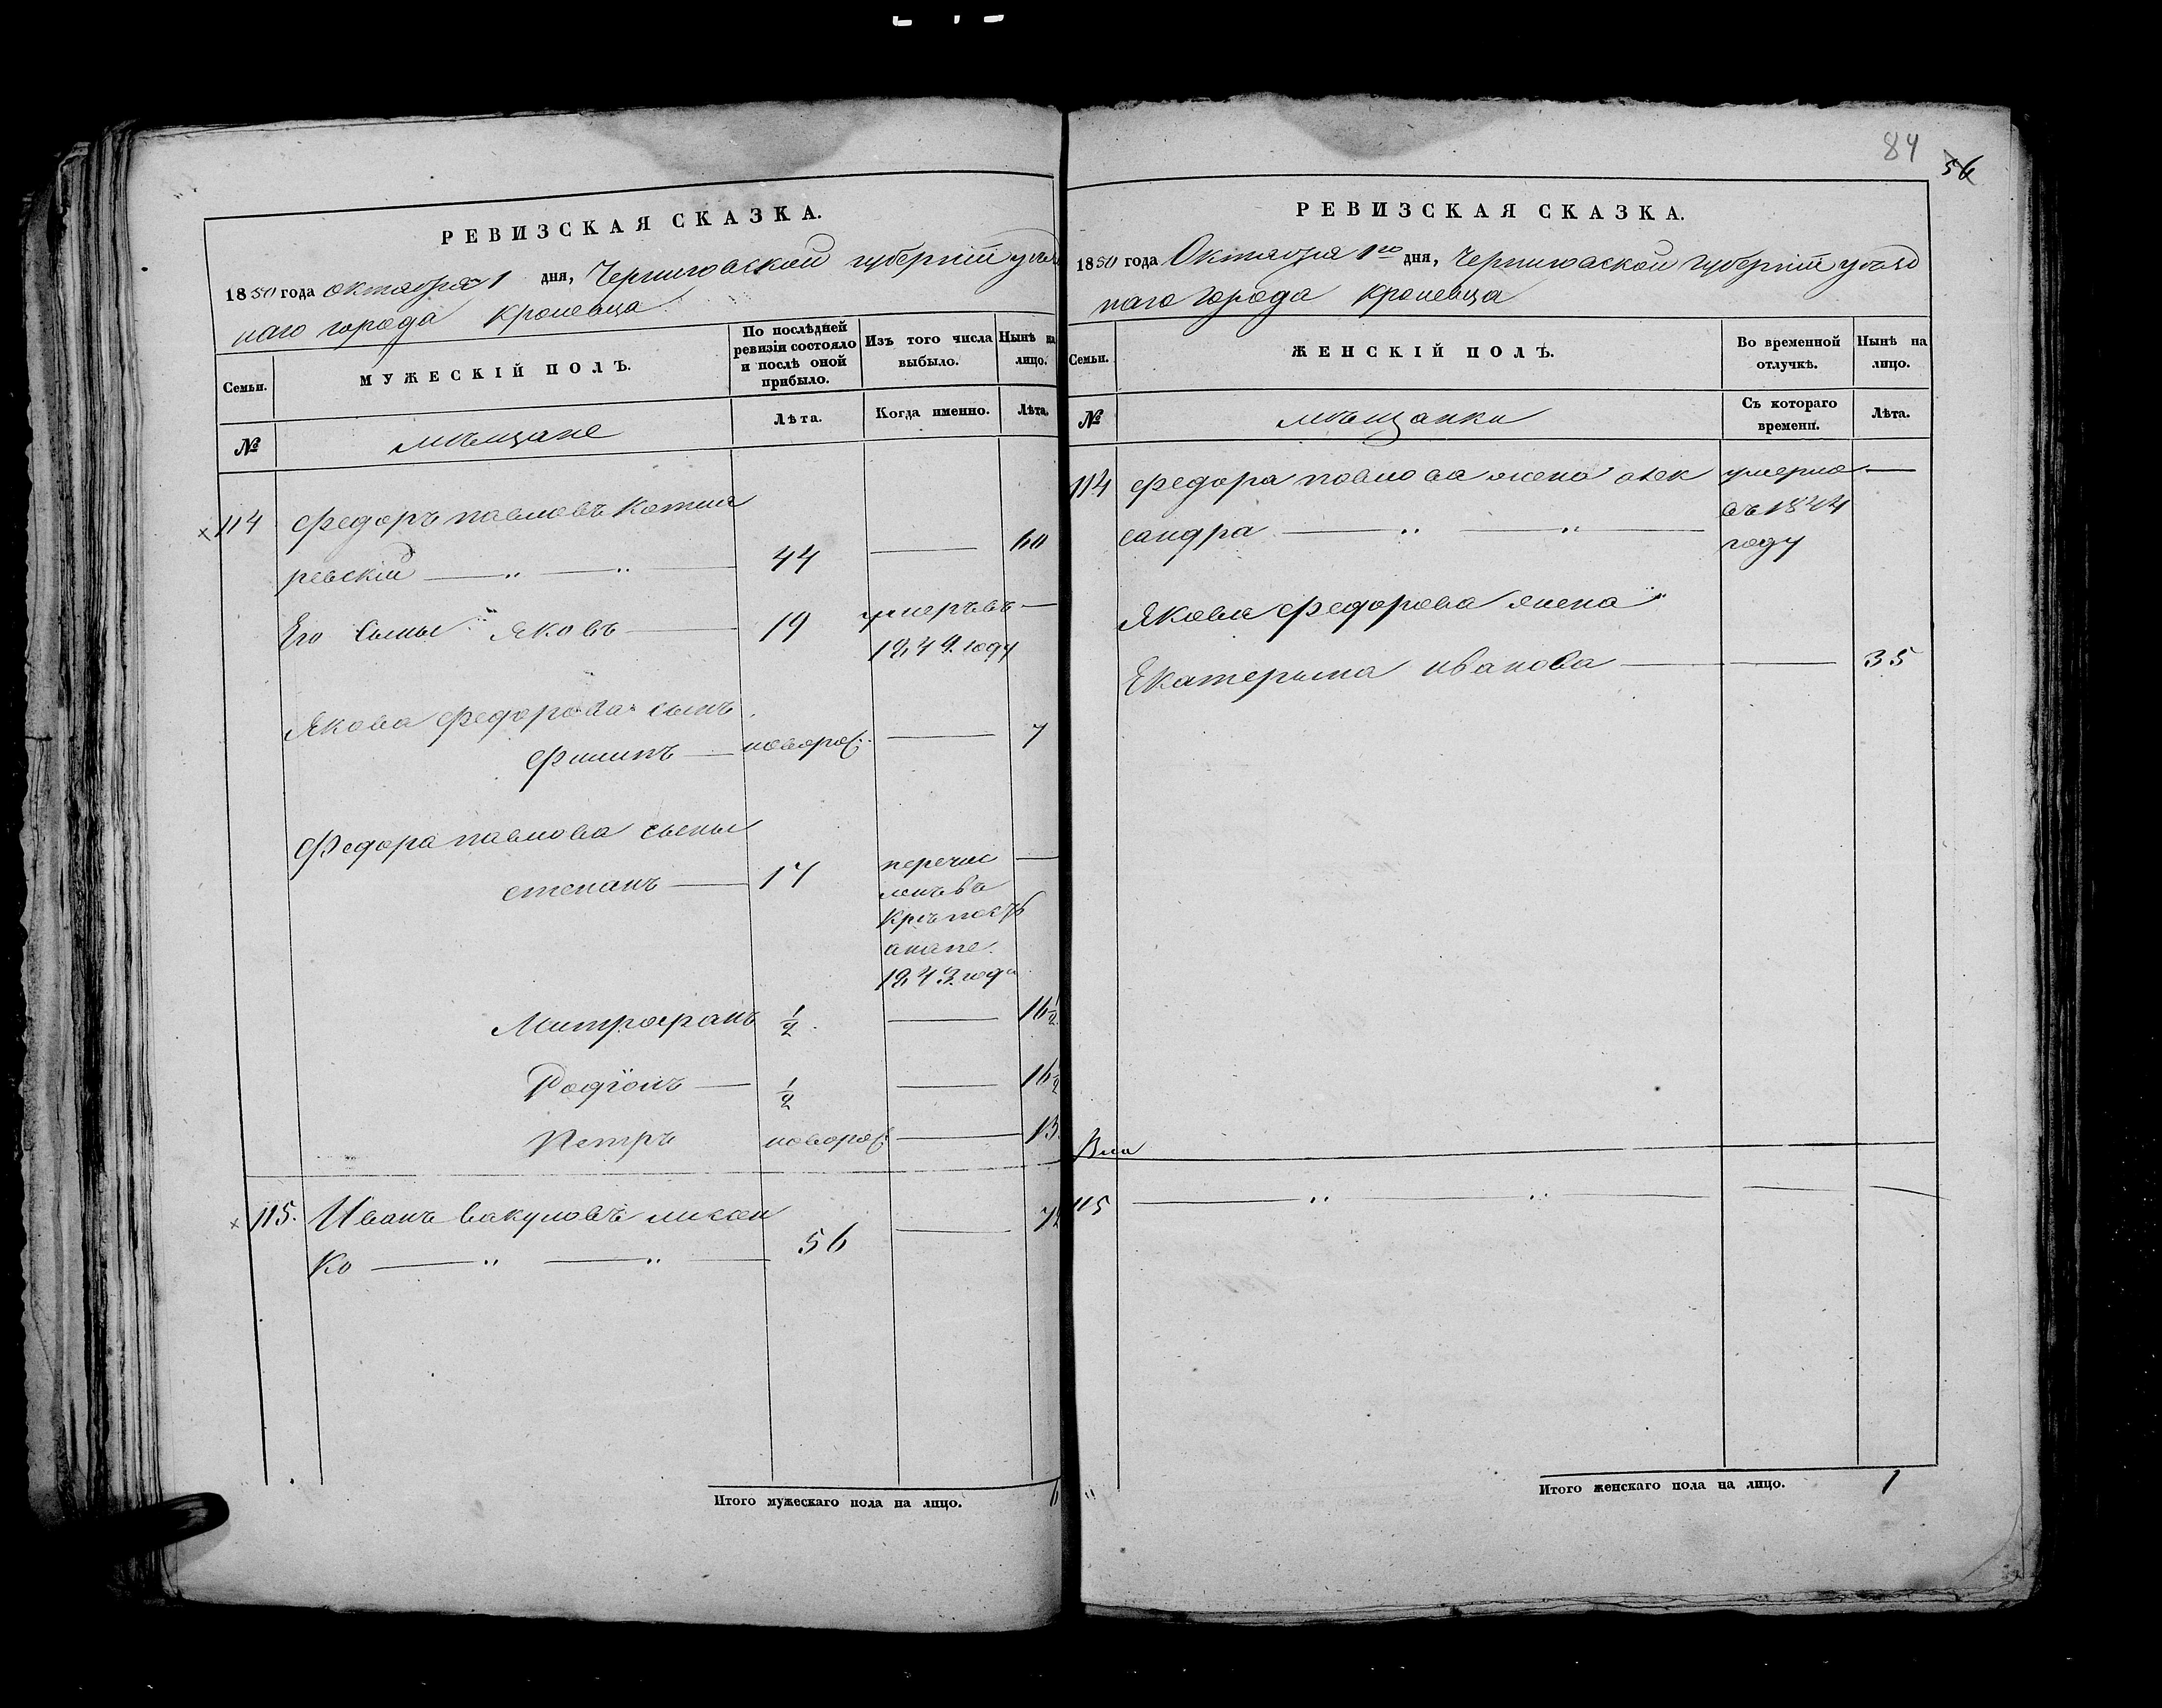 РЕВИЗСКАЯ СКАЗКА.
1850 года октября 1 дня, Черниговской губерніи уезд
наго города Кролевца
Семьи.
МУЖЕСКІЙ ПОЛЪ.
По послѣдней
ревизіи состояло
и послѣ оной
прибыло.
Изъ того числа
выбыло.
Нынѣ на
лицо.
№
мѣщане
Лѣта.
Когда именно.
Лѣта.
114 Федоръ павловъ Котля
ревскій 44 60
Его Сыны Яковъ 19 умеръ въ
1849 году
Якова Федорова сынъ
Филипъ новорож. 7
Федора павлова сыны
степанъ 17 перечис
ленъ въ
крѣпость
анапе.
1843 года
Митрофанъ 1/2. 16 1/2.
Родіонъ 1/2 16 1/2
Петръ новорож. 13.
115. Иванъ вакуловъ
ко 56 72
Итого мужескаго пола на лицо. 6
84
56
РЕВИЗСКАЯ СКАЗКА.
1850 года Октября 1го дня, Черниговской губерніи уезд
наго города Кролевца
Семьи.
ЖЕНСКІЙ ПОЛЪ.
Во временной
отлучкѣ.
Нынѣ на
лицо.
№
мѣщанки
Съ котораго
времени.
Лѣта.
114 Федора павлова жена алек
сандра умерла
въ 1844
году
Якова Федорова жена
Екатерына иванова 35
115
Итого женскаго пола на лицо. 1